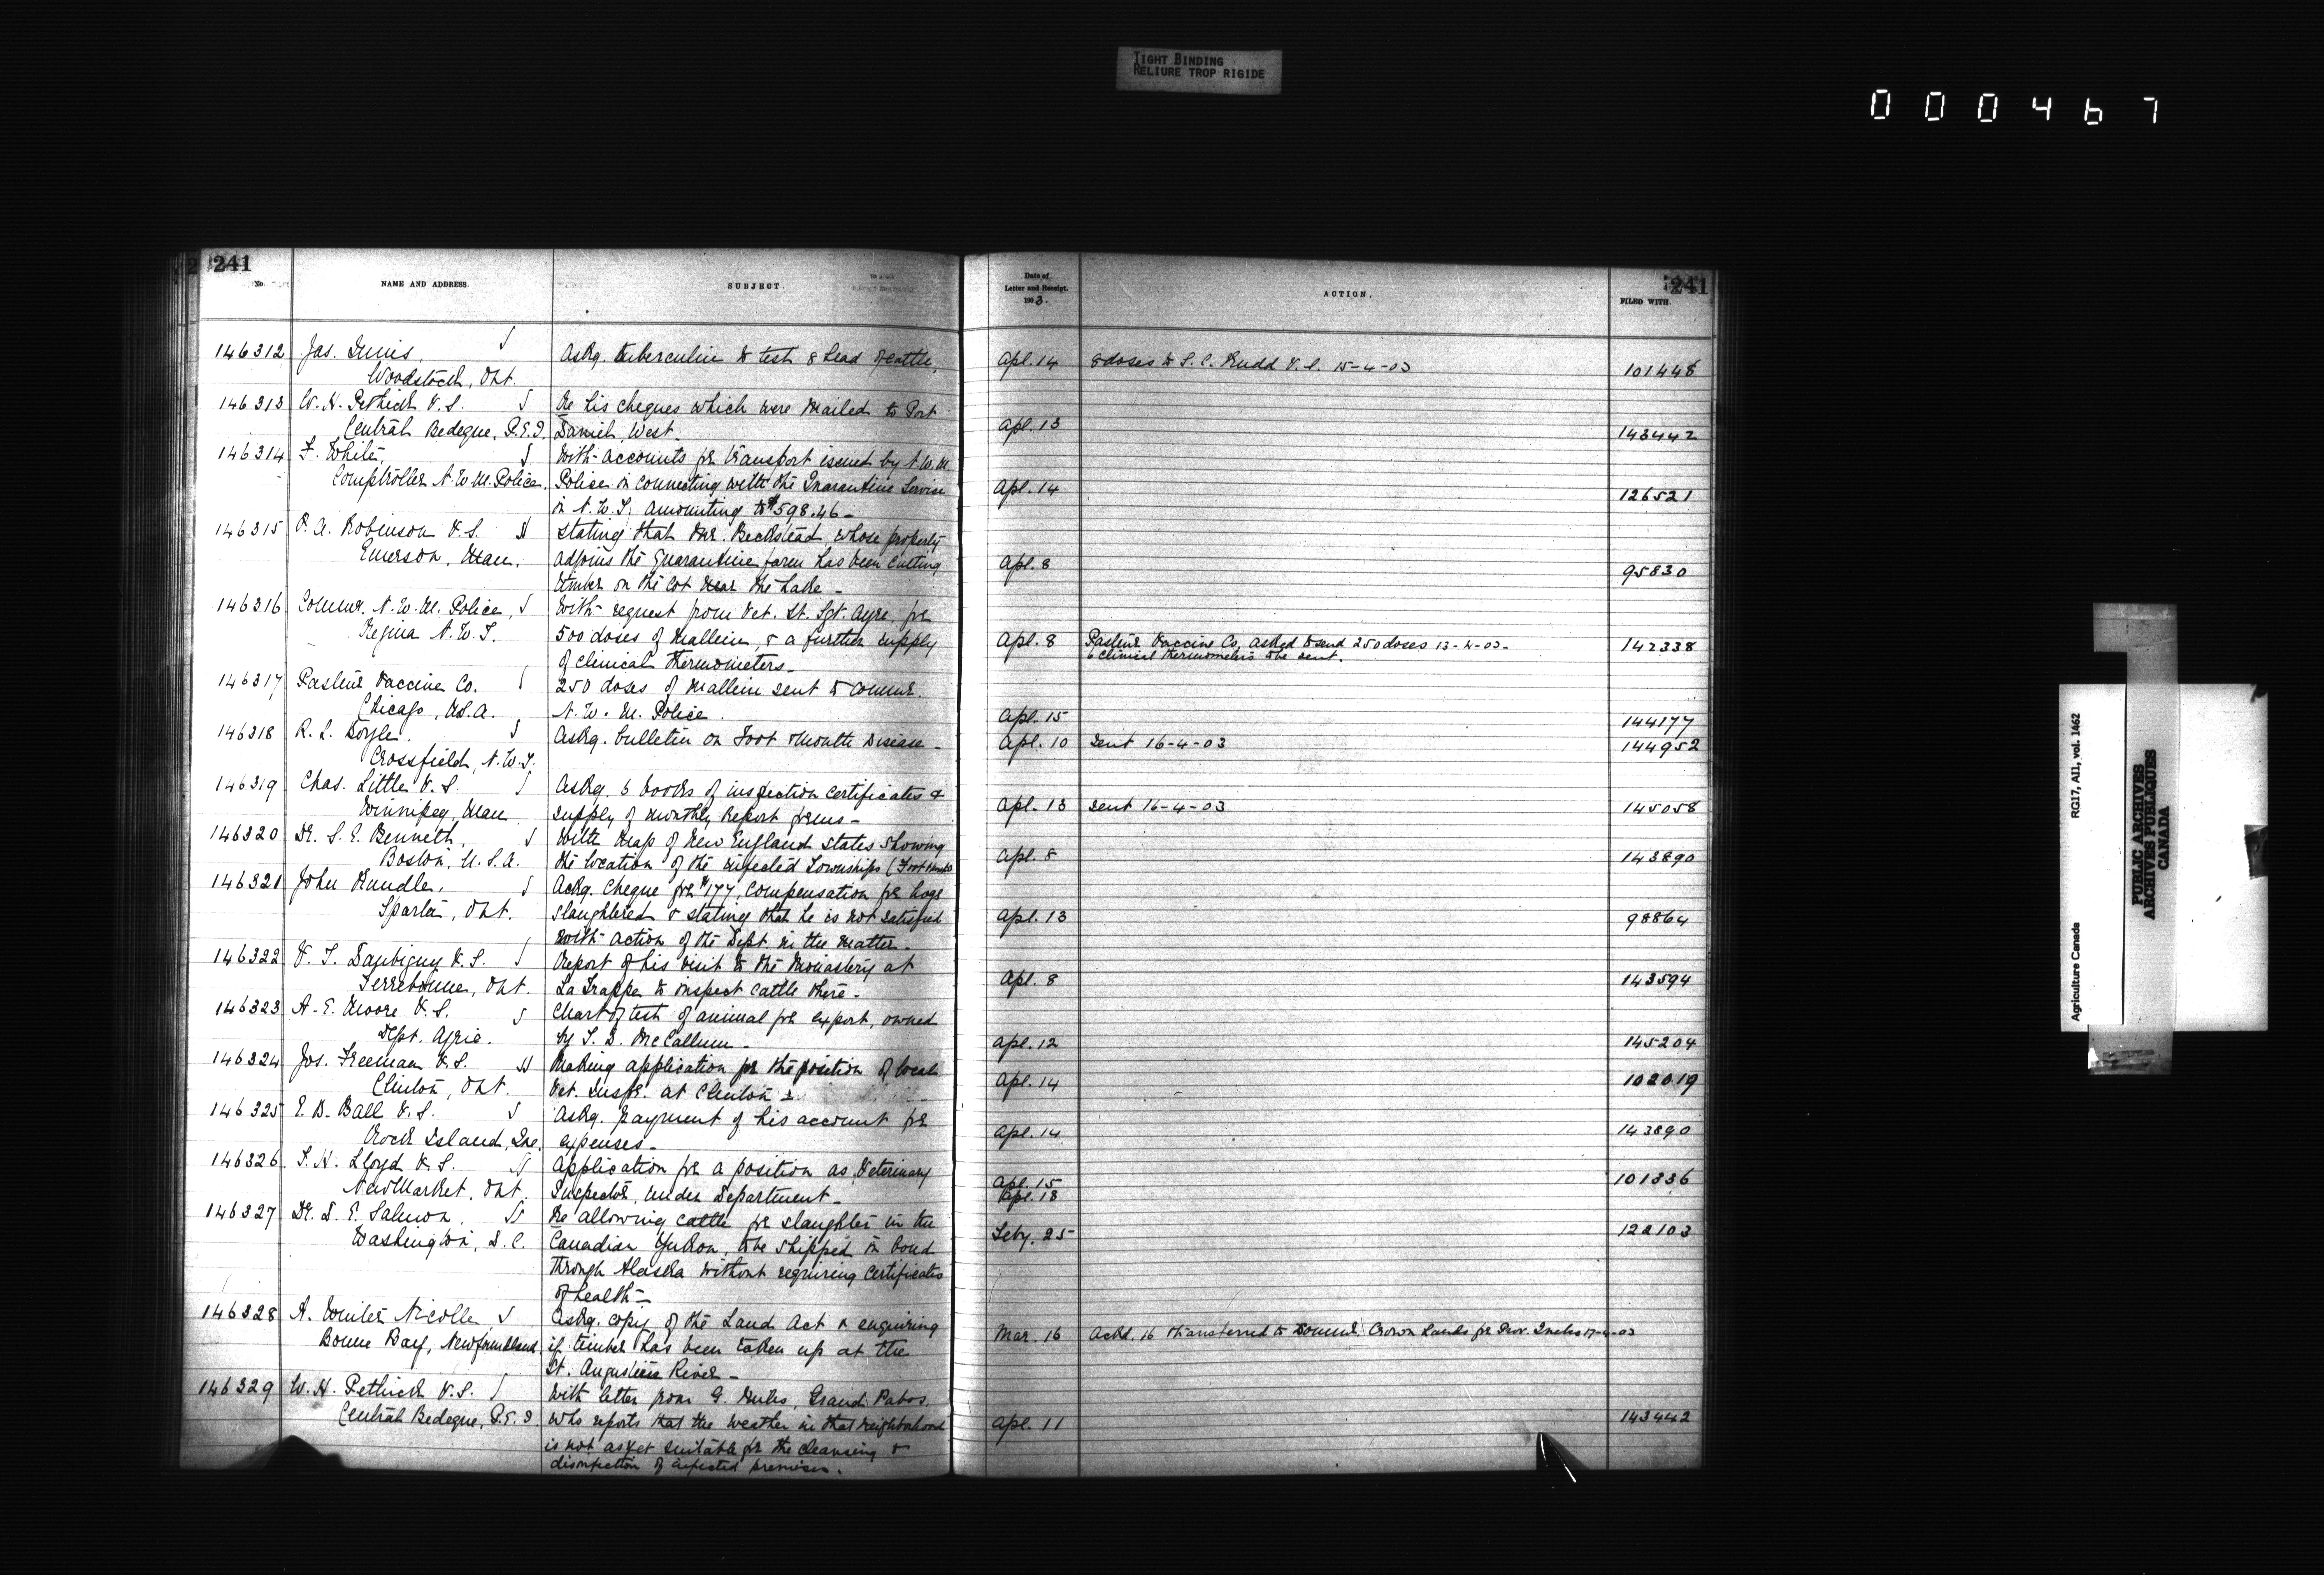 TIGHT BINDING
RELIURE TROP RIGIDE
000467
241
No.
NAME AND ADDRESS.
SUBJECT.
Date of
Letter and Receipt.
1903.
ACTION.
FILED WITH.
241
146312 Jas. Innis, Askg. tuberculin to test 8 head of cattle, Apl. 14 8 doses to S. C. Rudd V.S. 15-4-03 101448
Woodstock, Ont.
146313 W. H. Pethick V.S. Re his cheques which were mailed to Port
Central Bedeque, P.E.I. Daniel, West. Apl. 13 143442
146314 F. White, With accounts for transport issued by N.W.M.
Comptroller N.W.M. Police. Police in connecting with the Quarantine Service Apl. 14 126521
in N.W.T. amounting to $598.46-
146315 Robinson V.S. Stating that Mr. Beckstead, whose property
Emerson, Man. adjoins the Quarantine farm has been cutting Apl. 8 95830
timber on the lot near the Lake-
146316 Commr. N.W.M. Police, With request from Vet. St. Sgt. Ayre for
Regina N.W.T. 500 doses of Mallein, & a further supply Apl. 8 Pasteur Vaccine Co. asked to send 250 doses 13-4-03- 142338
of clinical thermometers- 6 clinical thermometers to be sent.
146317 Pasteur Vaccine Co. 250 doses of Mallein sent to Commr.
Chicago, U.S.A. N.W.M. Police. Apl. 15 144177
146318 R. L. Boyle. Askg. bulletin on Foot & Mouth Disease- Apl. 10 Sent 16-4-03 144952
Crossfield, N.W.T.
146319 Chas. Little V.S. Askg. 6 books of inspection certificates &
Winnipeg, Man. supply of monthly Report forms- Apl. 13 Sent 16-4-03 145058
146320 Dr. S. E. Bennett, With Map of New England States showing
Boston, U.S.A. the location of the infected Townships (Foot & Mouth) Apl. 8 143890
146321 John Rundle, Ackg. Cheque for $177, compensation for hogs
Sparta, Ont. slaughtered & stating that he is not satisfied Apl. 13 98864
with action of the Dept. in the matter-
146322 V. T. Daubigny V.S. Report of his visit to the Monastery at
Terrebonne, Ont. La Trappe to inspect cattle there- Apl. 8 143594
146323 A. E. Moore V.S. Chart of test of animal for export, owned
Dept. Agric. by T. D. McCallum- Apl. 12 145204
146324 Jos. Freeman V.S. Making application for the position of local
Clinton, Ont. Vet. Inspr. at Clinton- Apl. 14 102019
146325 Ball V.S. Askg. payment of his account for
Rock Island, Que. expenses- Apl. 14 143890
146326 T. H. Lloyd V.S. Application for a position as Veterinary
Newmarket, Ont. Inspector, under Department- Apl. 15 101336
Apl. 18
146327 Dr. D. E. Salmon. Re allowing cattle for slaughter in the
Washington, D.C. Canadian Yukon, to be shipped in bond Feby. 25 122103
through Alaska without requiring certificates
of health-
146328 A. Winter Nicolle Askg. copy of the Land Act & enquiring
Bonne Bay, Newfoundland, if timber has been taken up at the Mar. 16 Ackd. 16 transferred to Commr. Crown Lands for Prov. Quebec 17-4-03
St. Augustine River-
146329 W. H. Pethick V.S. With letter from G. Grand Pabos,
Central Bedeque, P.E.I. who reports that the weather in that neighborhood Apl. 11 143442
is not as yet suitable for the cleansing &
disinfection of infected premises.
Agriculture Canada RG17, AII, vol. 1462
PUBLIC ARCHIVES
ARCHIVES PUBLIQUES
CANADA